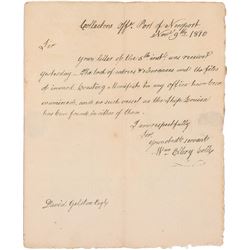 Collectors Offe. Port of Newport
Novr. 9th. 1810
Sir
Your letter of the 5th inst. was received
yesterday – The book of entries & Clearances and the files
of inward Coasting Manifests in my office have been
examined, and no such vessel as the Ship Louisa
has been found in either of them.
I am respectfully
Sir
your obedt. servant
Wm Ellery Collr
David Gelston Esqr